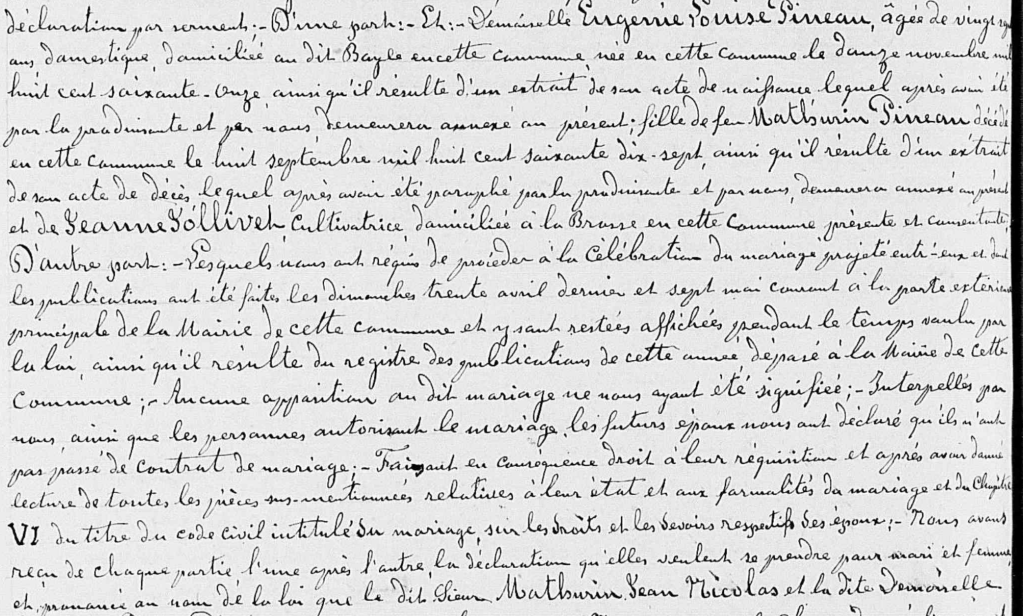 déclaration par serment; - D'une part: - Et: - Demoiselle Eugénie Louise Pineau, âgée de vingt
ans, domestique, domiciliée au dit Bayle en cette commune, née en cette commune le douze novembre mil
huit cent soixante-onze, ainsi qu'il résulte d'un extrait de son acte de naissance lequel après avoir été
par la produisante et par nous, demeurera annexé au présent; fille de feu Mathurin Pineau décédé
en cette commune le huit septembre mil huit cent soixante dix-sept, ainsi qu'il résulte d'un extrait
de son acte de décès, lequel après avoir été paraphé par la produisante et par nous, demeurera annexé au présent
et de Jeanne Jollivet, Cultivatrice, domiciliée à la Brosse en cette Commune présente et consentante;
D'autre part: - Lesquels nous ont réquis de procéder à la Célébration du mariage projeté entr-eux et dont
les publications ont été faites les dimanches trente avril dernier et sept mai courant à la porte extérieure
principale de la Mairie de cette commune et y sont restées affichées pendant le temps voulu par
la loi, ainsi qu'il résulte du registre des publications de cette année déposé à la Mairie de cette
Commune; - Aucune opposition au dit mariage ne nous ayant été signifiée; - Interpellés par
nous, ainsi que les personnes autorisant le mariage, les futurs époux nous ont déclaré qu'ils n'ont
pas passé de contrat de mariage; - Faisant en conséquence droit à leur réquisition et après avoir donné
lecture de toutes les pièces sus-mentionnées relatives à leur état et aux formalités du mariage et du Chapitre
VI du titre du code civil intitulé du mariage, sur les droits et les devoirs respectifs des époux; - Nous avons
reçu de chaque partie l'une après l'autre, la déclaration qu'elles veulent se prendre pour mari et femme,
et prononcé au nom de la loi que le dit Sieur Mathurin Jean Nicolas et la dite Demoiselle